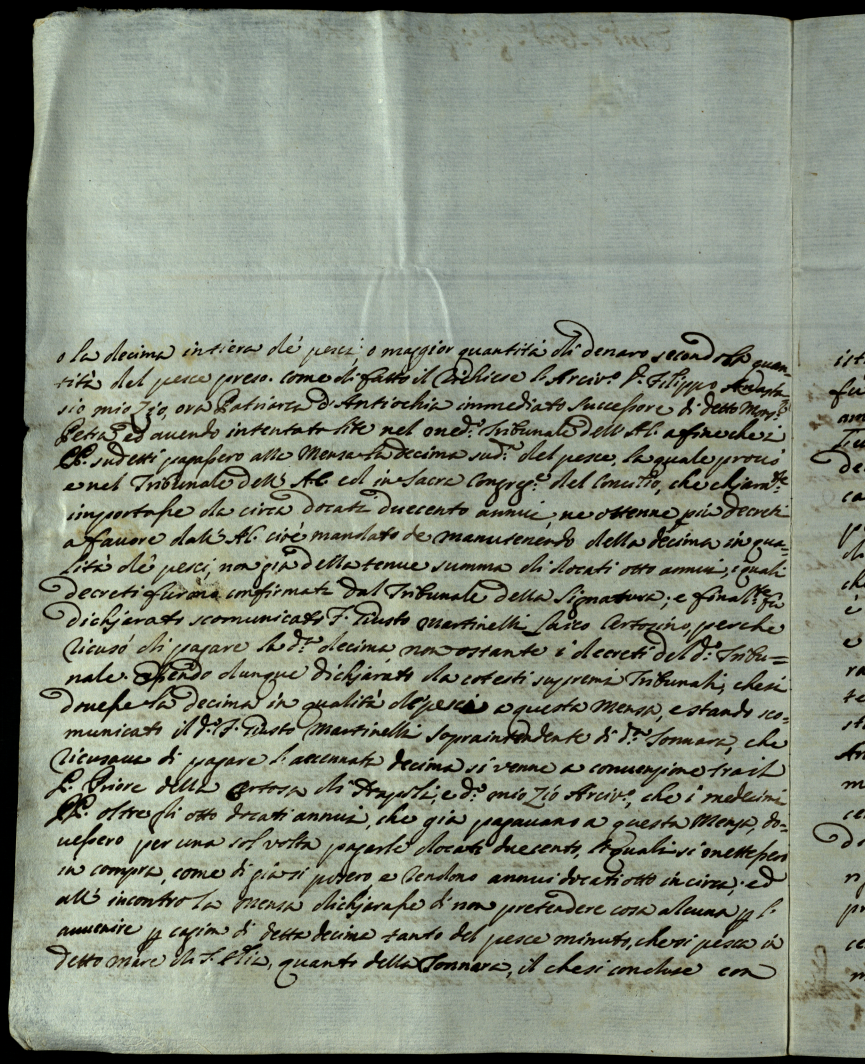 o la decima intiera de' pesci, o maggior quantità di denaro secondo la quan
tità del pesce preso. Come di fatto il richiese l'Arciv.º F. Filippo Anasta
sio mio Zio, ora Patriarca d'Antiochia immediato successore di detto Mons.r
Petra, ed avendo intentata lite nel med.º Tribunale dell'A.C. affinche i
PP. sudetti pagassero alla Mensa la decima sud.ª del pesce, la quale provò
e nel Tribunale dell'A.C. ed in Sacra Congreg.e del Concilio, che chiaram.te
importasse da circa docati duecento annui, ne ottenne più decreti
a favore dall'A.C. cioè mandato de manutenendo della decima in qua=
lità de' pesci, non già della tenue summa di docati otto annui, i quali
decreti furono confirmati dal Tribunale della Signatura; e finalm.te fu
dichjarato scomunicato F. Giusto Martinelli Laico Certosino, perche
ricusò di pagare la d.ª decima, non ostante i decreti del d.º Tribu=
nale. Essendo dunque dichjarato da cotesti supremi Tribunali, che si
dovesse la decima in qualità de' pesci a questa Mensa, e stando sco=
municato il d.º F. Giusto Martinelli sopraintendente di d.ª Tonnara, che
ricusava di pagare l'accennata decima si venne a convenzione tra il
P. Priore della Certosa di Napoli, e d.º mio Zio Arciv.º, che i medesimi
PP. oltre gli otto docati annui, che già pagavano a questa Mensa, do=
vessero per una sol volta pagarle docati duecento, li quali si mettessero
in compra, come di già si posero e rendono annui docati otto in circa; ed
all'incontro la Mensa dichjarasse di non pretendere cosa alcuna p l'
avvenire p causa di detta decima tanto del pesce minuto, che si pesca in
detto mare di S. Elia, quanto della Tonnara, il che si concluse con